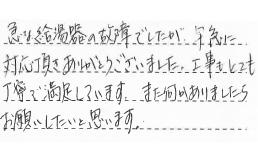 急な給湯器の故障でしたが、早急に
対応頂きありがとうございました。工事もとても
丁寧で満足しています。また何かありましたら
お願いしたいと思います。